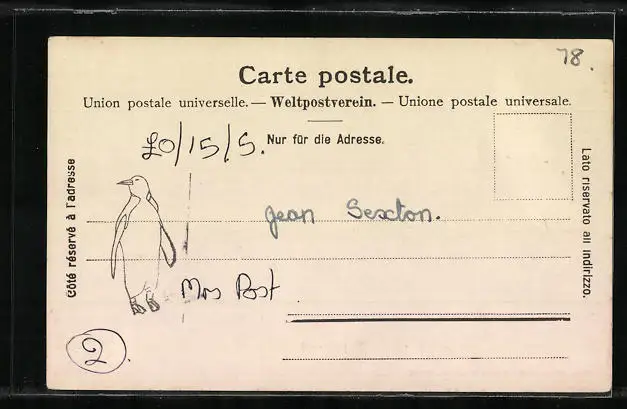 78.
Carte postale.
Union postale universelle. — Weltpostverein. — Unione postale universale.
£0/15/5.
Nur für die Adresse.
Côté réservé à l'adresse
Lato riservato all indirizzo.
Jean Sexton.
Mrs Post
2